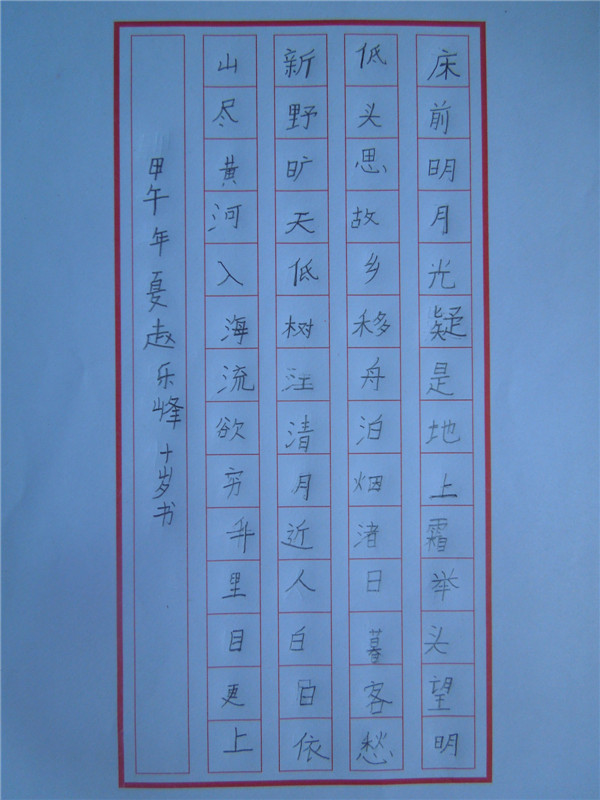 床前明月光疑是地上霜举头望明
低头思故乡移舟泊烟渚日暮客愁
新野旷天低树江清月近人白日依
山尽黄河入海流欲穷千里目更上
甲午年夏赵乐峰十岁书